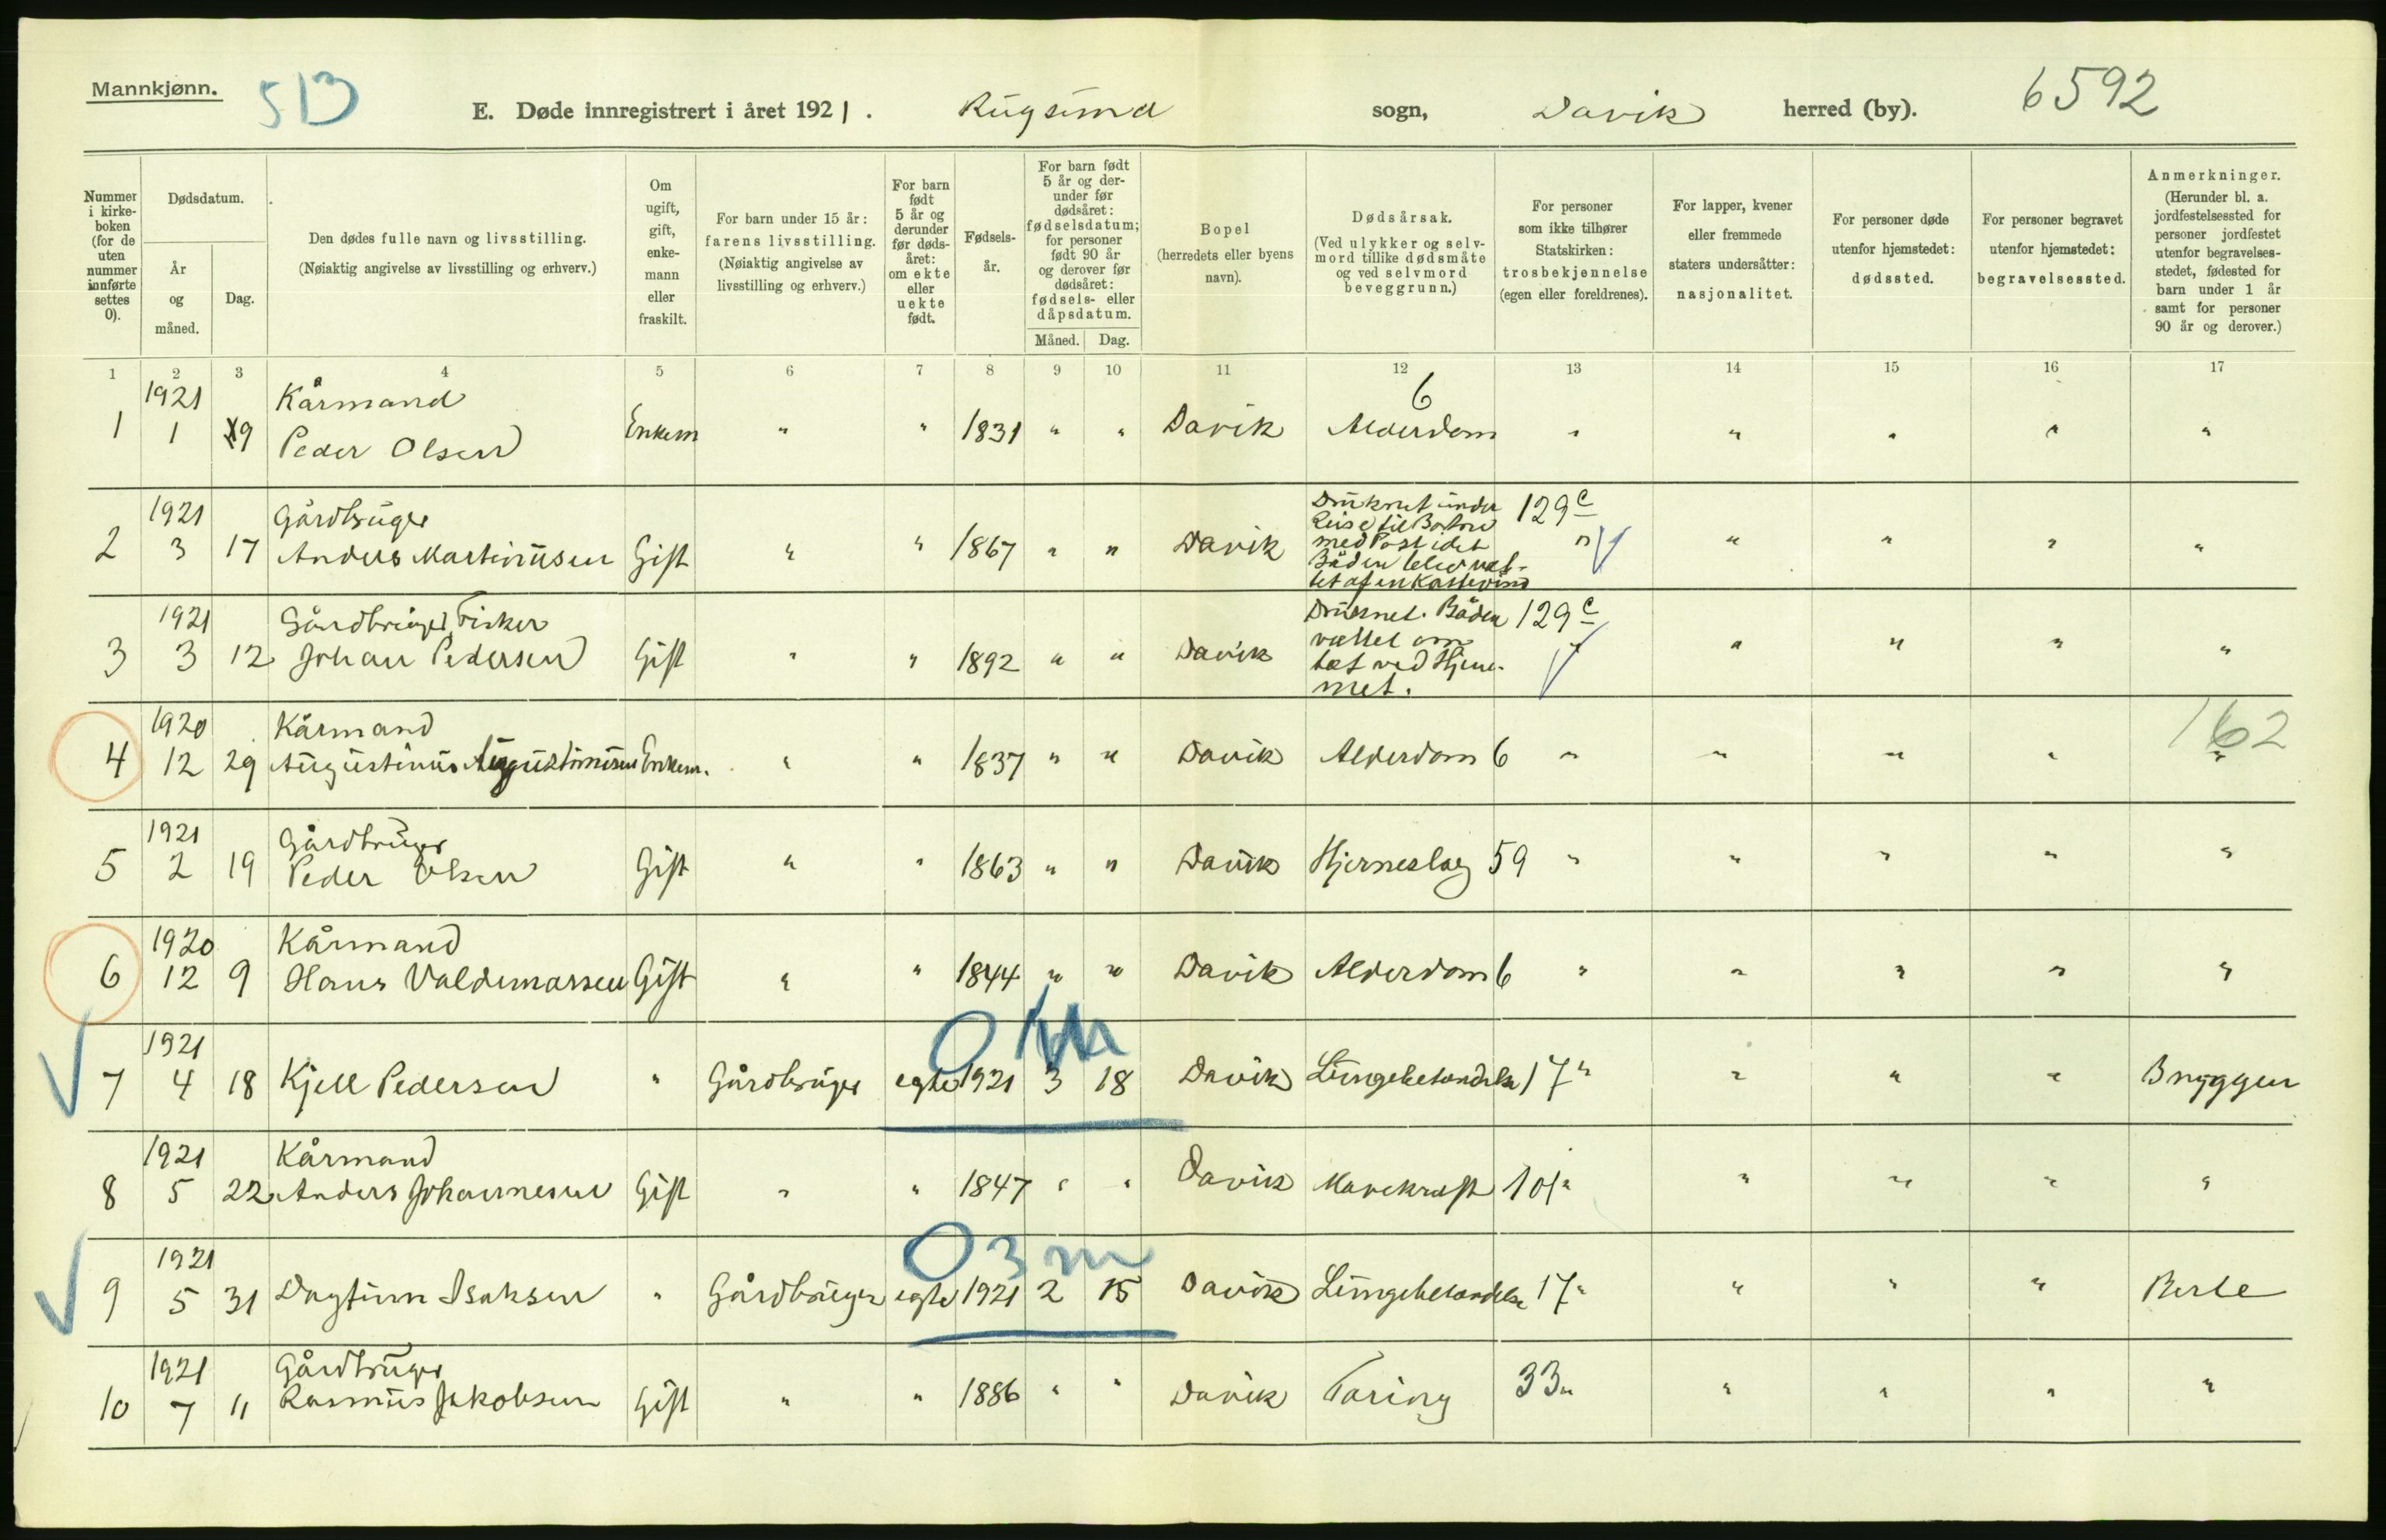 Mannkjønn.
513
E. Døde innregistrert i året 1921. Rugsund sogn, Davik herred (by).
6592
Nummer i kirkeboken (for de uten nummer innførte settes 0).
Dødsdatum.
År og måned.
Dag.
Den dødes fulle navn og livsstilling.
(Nøiaktig angivelse av livsstilling og erhverv.)
Om ugift, gift, enkemann eller fraskilt.
For barn under 15 år: farens livsstilling. (Nøiaktig angivelse av livsstilling og erhverv.)
For barn født 5 år og derunder før dødsåret: om ekte eller uekte født.
Fødselsår.
For barn født 5 år og derunder før dødsåret: fødselsdatum; for personer født 90 år og derover før dødsåret: fødsels- eller dåpsdatum.
Måned. Dag.
Bopel (herredets eller byens navn).
Dødsårsak. (Ved ulykker og selvmord tillike dødsmåte og ved selvmord beveggrunn.)
For personer som ikke tilhører Statskirken: trosbekjennelse (egen eller foreldrenes).
For lapper, kvener eller fremmede staters undersåtter: nasjonalitet.
For personer døde utenfor hjemstedet: dødssted.
For personer begravet utenfor hjemstedet: begravelsessted.
Anmerkninger. (Herunder bl. a. jordfestelsessted for personer jordfestet utenfor begravelsesstedet, fødested for barn under 1 år samt for personer 90 år og derover.)
1 2 3 4 5 6 7 8 9 10 11 12 13 14 15 16 17
1921 Kårmand 6
1 1 19 Peder Olsen Enkem " " 1831 " " Davik Alderdom " " " " "
1921 Gårdbruger
2 3 17 Anders Martinusen Gift " " 1867 " " Davik Druknet under Reise til Bortne med Post idet Båden blev væltet af en Kastevind 129c " " " " "
1921 Gårdbruger, Fisker
3 3 12 Johan Pedersen Gift " " 1892 " " Davik Druknet. Båden væltet om tæt ved Hjemmet. 129c " " " " "
1920 Kårmand
4 12 29 Augustinus Augustinusen Enkem. " " 1837 " " Davik Alderdom 6 " " " " " 162
1921 Gårdbruger
5 2 19 Peder Olsen Gift " " 1863 " " Davik Hjerneslag 59 " " " " "
1920 Kårmand
6 12 9 Hans Valdemarsen Gift " " 1844 " " Davik Alderdom 6 " " " " "
1921
7 4 18 Kjell Pedersen " Gårdbruger egte 1921 3 18 Davik Lungebetændelse 17 " " " " Bryggen
1921 Kårmand
8 5 22 Anders Johannesen Gift " " 1847 " " Davik Mavekraft 101a " " " "
0 3 m
1921
9 5 31 Dagfinn Isaksen " Gårdbruger egte 1921 2 15 Davik Lungebetændelse 17 " " " " Berle
1921 Gårdbruger
10 7 11 Rasmus Jakobsen Gift " " 1886 " " Davik Tæring 33 " " " " "